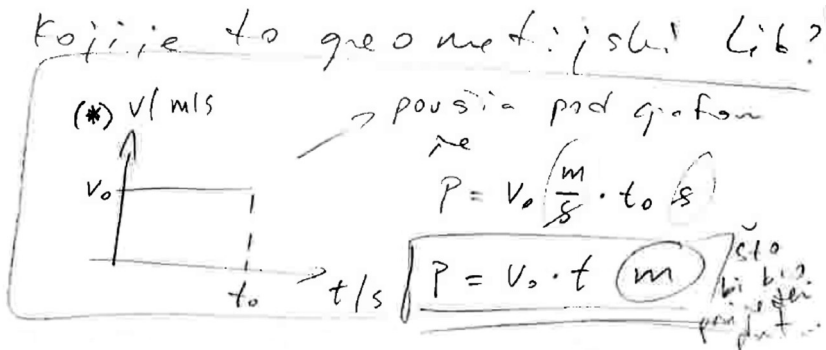 Koji je to geometrijski lik?
(*) v/ m/s
v₀
t₀
t/s
površina pod grafom
je
P = v₀ m/s · t₀ s
P = v₀ · t m
što
bi bio